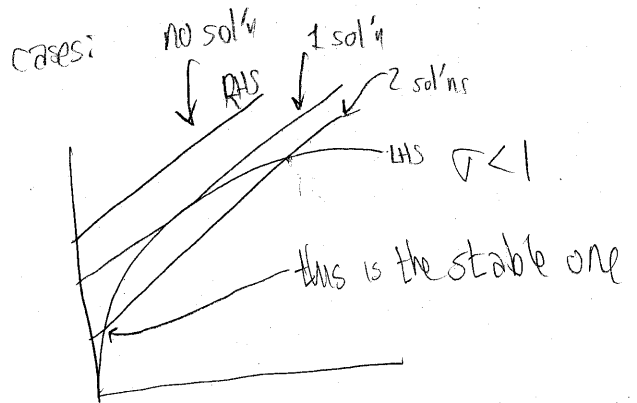 cases:
no sol'n
1 sol'n
RHS
2 sol'ns
LHS
σ<1
this is the stable one